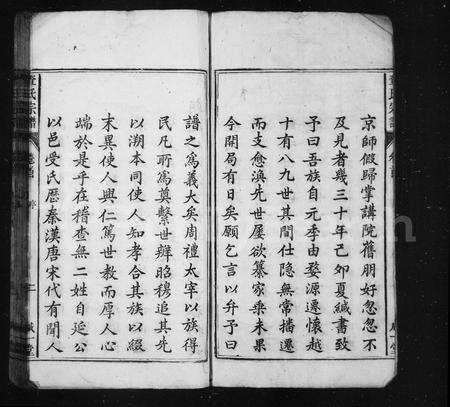 京師假歸掌講院舊朋好忽忽不
及見者幾三十年己卯夏緘書致
予曰吾族自元季由婺源遷懷越
十有八九世其間仕隱無常播遷
而支愈渙先世屢欲纂家椉未果
今開局有日矣願乞言以弁予曰
譜之為義大矣周禮太宰以族得
民凡所為奠繫世辨昭穆追其先
以溯本同使人知孝合其族以綴
末異使人興仁篤世教而厚人心
端於是乎在稽查無二姓自延公
以邑受氏歷秦漢唐宋代有聞人
查氏宗譜
序
二